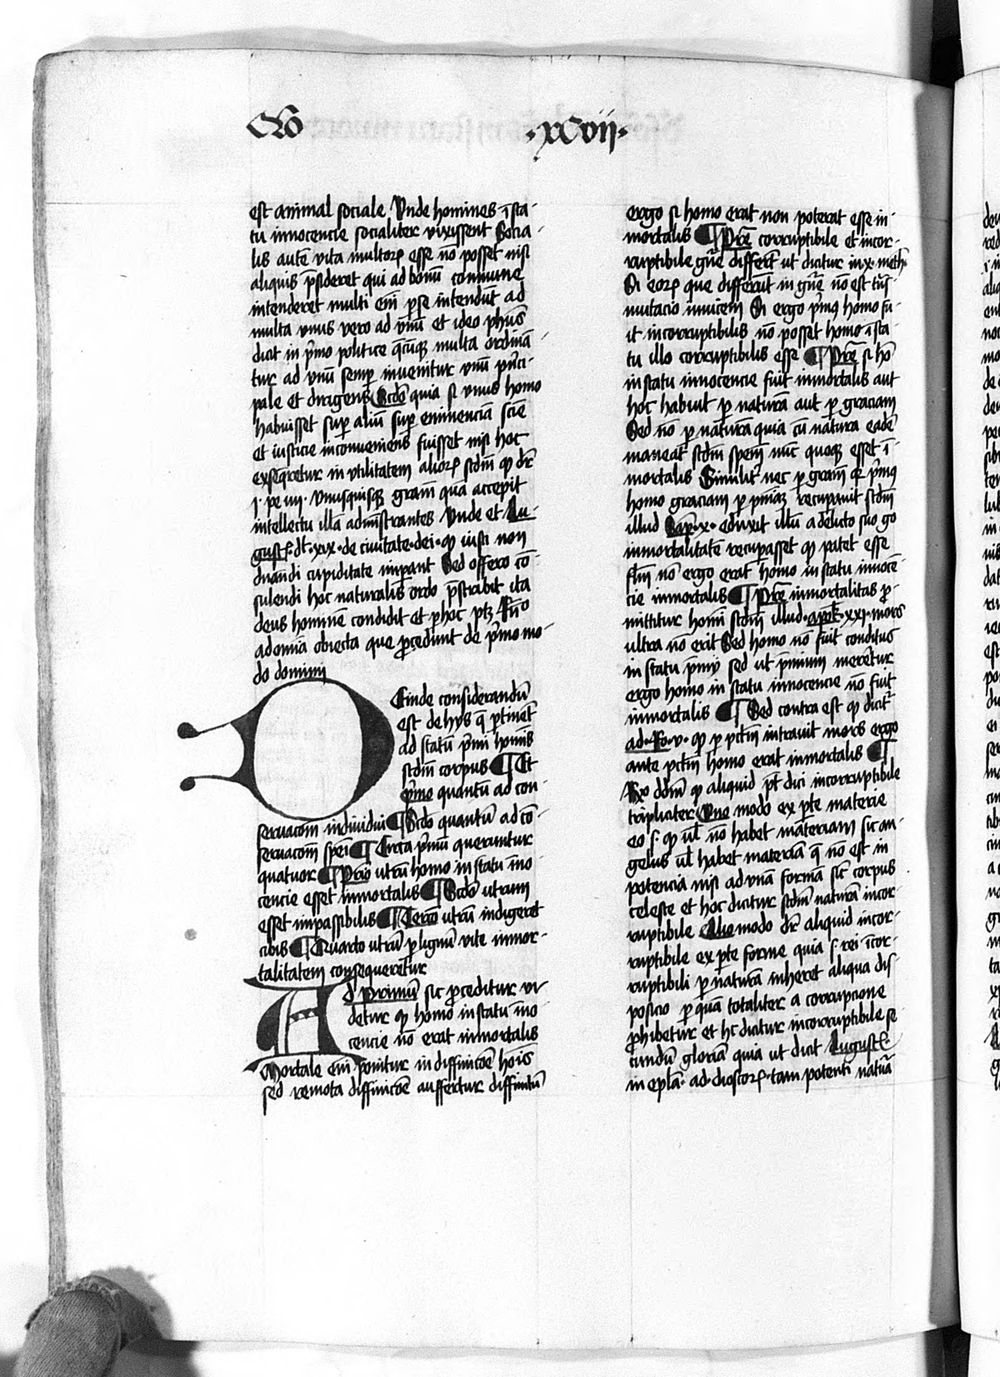 Qo
·xcvii·
est animal sociale Vnde homines ī sta-
tu innocencie socialiter vixissent Socia-
lis autē vita multoꝝ esse nō posset nisi
aliquis p̄sideret qui ad bonū commune
intenderet multi em̄ per se intendūt ad
multa vnus vero ad vnū et ideo phūs
dicit in p̄mo politice qn̄cūq multa ordinā-
tur ad vnū semp̄ inuenitur vnū p̄nci-
pale et dirigens Scd̄o quia si vnus homo
habuisset sup̄ aliū sup̄ eminenciā scīe
et iusticie inconueniens fuisset nisi hoc
exseqretur in vtilitatem alioꝝ scdm̄ qp dr̄
i· pe iiii· vnusquisqꝫ graciā qua accepit
intellectu illā adm̄strantes Vnde et Au-
gustꝰ dt· xix· de ciuitate· dei· qp iusti non
dn̄andi cupiditate imp̄ant Sed officio cō-
sulendi hoc naturalis ordo p̄scribit ita
deus hominē condidit et p hoc ptꝫ Rn̄sio
ad omīa obiecta que p̄cedunt de p̄mo mo-
do domīni
Deinde considerandū
est de hys q̄ ptinēt
ad statū p̄mi hoīnis
scdm̄ corpus ¶ Et
p̄mo quantū ad con-
seruacōm indiuidui ¶ Scd̄o quantū ad cō-
seruacōm spēi ¶ Circa p̄mū queruntur
quatuor ¶ Primo utrū homo in statu īno-
cencie esset immortalis ¶ Scd̄o utrum
esset impassibilis ¶ Tercio utrū indigeret
cibis ¶ Quarto utrū p lignū vite inmor-
talitatem consequeretur
Ad Primū sic p̄ceditur vi-
detur qp homo in statu īno-
cencie nō erat inmortalis
Mortale em̄ ponitur in diffinicōe hoīs
sed remota diffinicōe auffertur diffinitū
ergo si homo erat non poterat esse in-
mortalis ¶ Pret̄ corruptibile et incor-
ruptibile gn̄e differūt ut dicitur in x· meth·
Si eoꝝ que differūt in gn̄e nō est trās-
mutacio inuicem Si ergo p̄mꝰ homo fu-
it incorruptibilis nō posset homo ī sta-
tu illo corruptibilis esse ¶ Pret̄ si hō
in statu innocencie fuit inmortalis aut
hoc habuit p naturā aut p graciam
Sed nō p naturā quia cū natura eadē
maneat scdm̄ speciē nūc quoqꝫ esset ī-
mortalis Similit̄ nec p graciā qꝛ p̄mꝰ
homo graciam p pniāꝫ recupauit scdm̄
illud Sap· x· eduxit illū a delicto suo ḡo
inmortalitatē recupasset qp patet esse
flm̄ nō ergo erat homo in statu innocē-
cie inmortalis ¶ Pret̄ inmortalitas p̄-
mittitur hoīni scdm̄ illud· apoc̄· xxi· mors
ultra nō erit Sed homo nō fuit conditus
in statu p̄mij sed ut p̄mium meretur
ergo homo in statu innocencie nō fuit
inmortalis ¶ Sed contra est qp dicit̄
ad· Ro· v· qp p pctm̄ intrauit mors ergo
ante pctm̄ homo erat inmortalis ¶
Rō ddm̄ qp aliquid pt̄ dici incorruptibile
tripliciter Vno modo ex pte materie
eo s· qp ul̄ nō habet materiam sic an-
gelus ul̄ habet materiā q̄ nō est in
potencia nisi ad vnā formā sic̄ corpus
celeste et hoc dicitur scdm̄ naturā incor-
ruptibile Alio modo dr̄ aliquid incor-
ruptibile ex pte forme quia s· rei īcor-
ruptibili p naturā inheret aliqua dis-
posicio p quā totaliter a corrupcione
p̄hibetur et hc̄ dicitur incorruptibile se-
cundū gloriā quia ut dicit Augustꝰ
in ep̄la· ad· dioscorꝝ· tam potenti natura